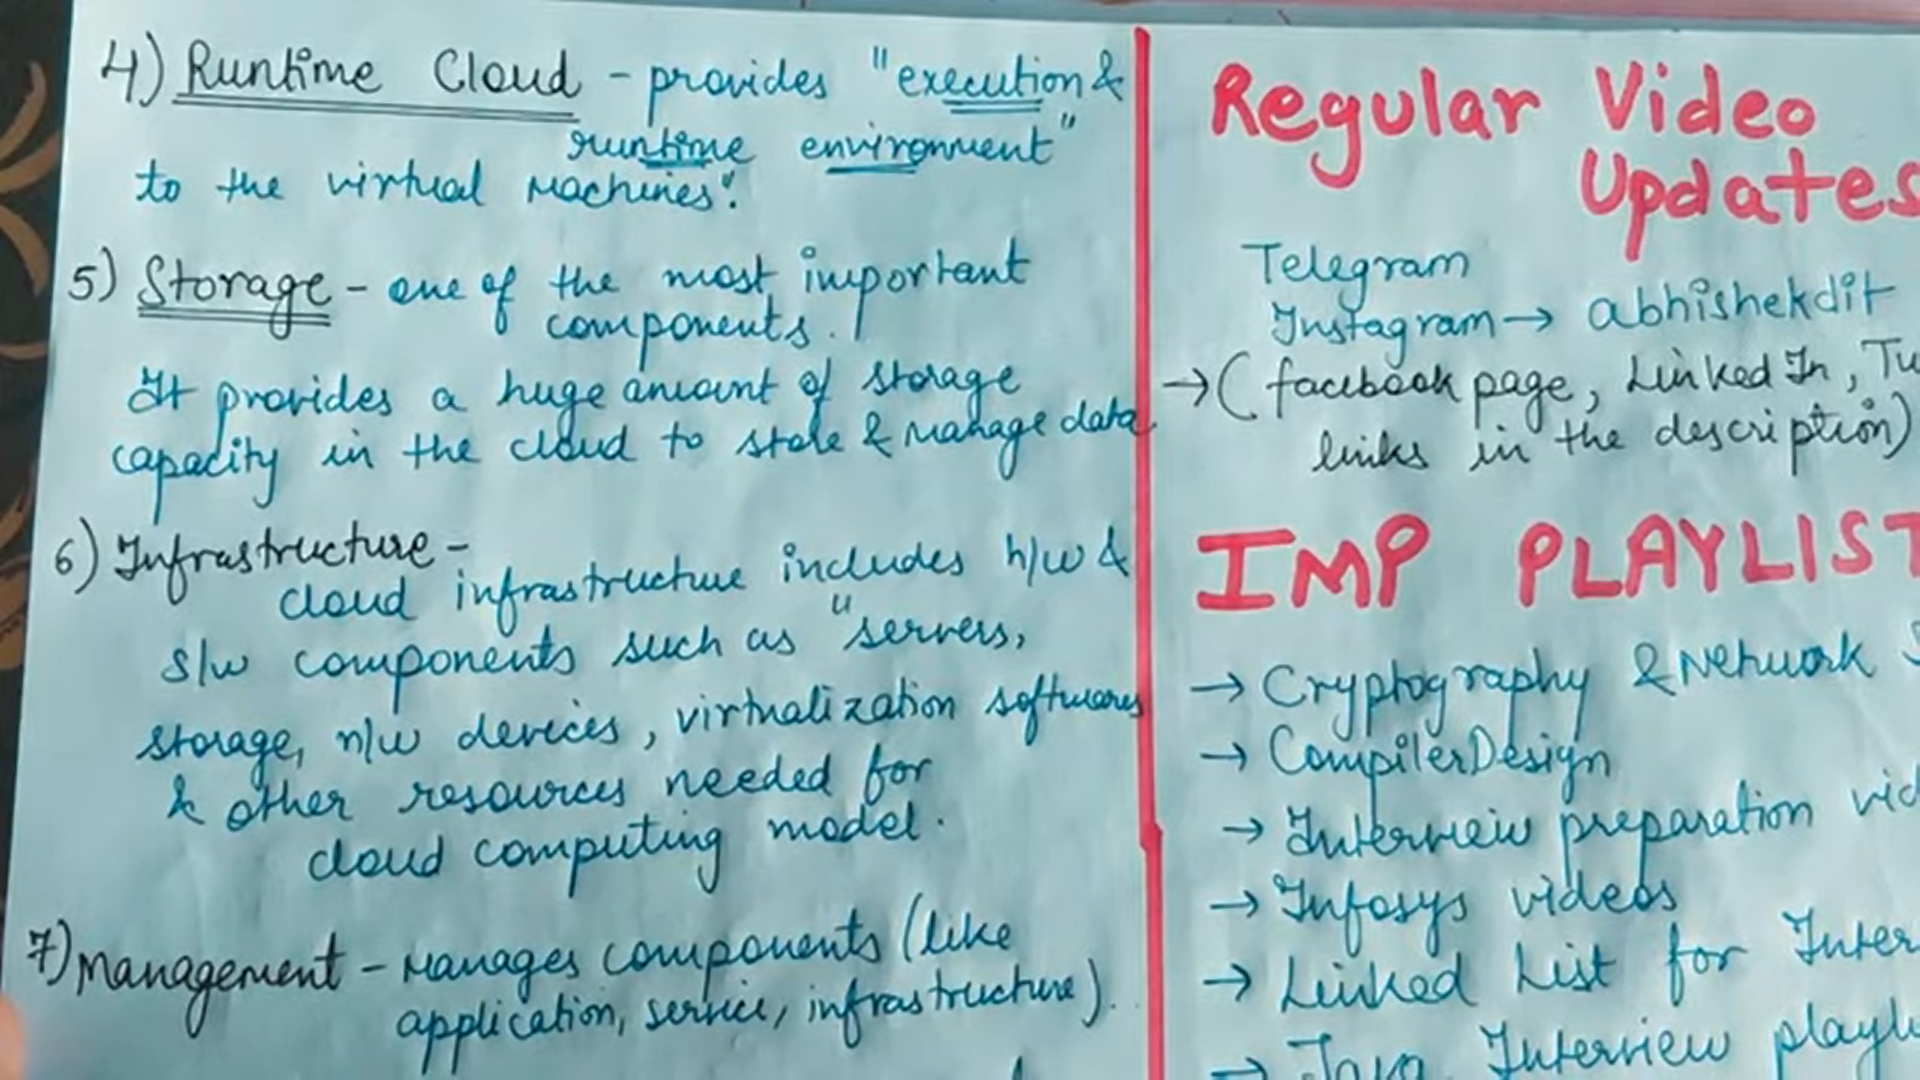 4) Runtime Cloud - provides "execution &
runtime environment"
to the virtual machines".
5) Storage - one of the most important
components.
It provides a huge amount of storage
capacity in the cloud to store & manage data
6) Infrastructure -
cloud infrastructure includes h/w &
s/w components such as "servers,
storage, n/w devices, virtualization softwares
& other resources needed for
cloud computing model.
7) Management - Manages components (like
application, service, infrastructure).
Regular Video
Updates
Telegram
Instagram → abhishekdit
→ (facebook page, Linked In,
links in the description)
IMP PLAYLIST
→ Cryptography & Network
→ CompilerDesign
→ Interview preparation
→ Infosys videos
→ Linked List for
→ Java Interview